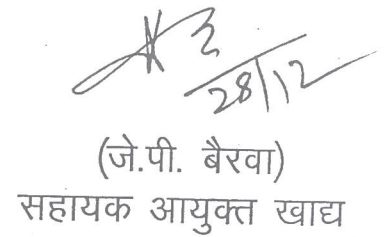 28/12
(जे.पी. बैरवा)
सहायक आयुक्त खाद्य